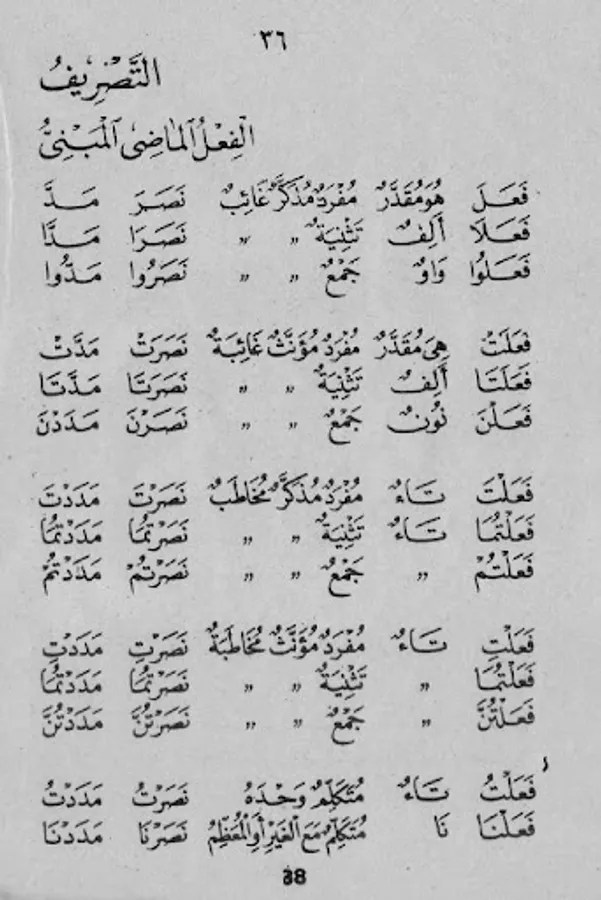 ٣٦
التَّصْرِيفُ
الْفِعْلُ الْمَاضِى الْمَبْنِىُّ
فَعَلَ هُوَ مُقَدَّرٌ مُفْرَدٌ مُذَكَّرٌ غَائِبٌ نَصَرَ مَدَّ
فَعَلَا أَلِفٌ تَثْنِيَةٌ " " نَصَرَا مَدَّا
فَعَلُوا وَاوٌ جَمْعٌ " " نَصَرُوا مَدُّوا
فَعَلَتْ هِىَ مُقَدَّرٌ مُفْرَدٌ مُؤَنَّثٌ غَائِبَةٌ نَصَرَتْ مَدَّتْ
فَعَلَتَا أَلِفٌ تَثْنِيَةٌ " " نَصَرَتَا مَدَّتَا
فَعَلْنَ نُونٌ جَمْعٌ " " نَصَرْنَ مَدَدْنَ
فَعَلْتَ تَاءٌ مُفْرَدٌ مُذَكَّرٌ مُخَاطَبٌ نَصَرْتَ مَدَدْتَ
فَعَلْتُمَا تَاءٌ تَثْنِيَةٌ " " نَصَرْتُمَا مَدَدْتُمَا
فَعَلْتُمْ " جَمْعٌ " " نَصَرْتُمْ مَدَدْتُمْ
فَعَلْتِ تَاءٌ مُفْرَدٌ مُؤَنَّثٌ مُخَاطَبَةٌ نَصَرْتِ مَدَدْتِ
فَعَلْتُمَا " تَثْنِيَةٌ " " نَصَرْتُمَا مَدَدْتُمَا
فَعَلْتُنَّ " جَمْعٌ " " نَصَرْتُنَّ مَدَدْتُنَّ
فَعَلْتُ تَاءٌ مُتَكَلِّمٌ وَحْدَهُ نَصَرْتُ مَدَدْتُ
فَعَلْنَا نَا مُتَكَلِّمٌ مَعَ الْغَيْرِ أَوِ الْمُعَظِّمُ نَصَرْنَا مَدَدْنَا
38